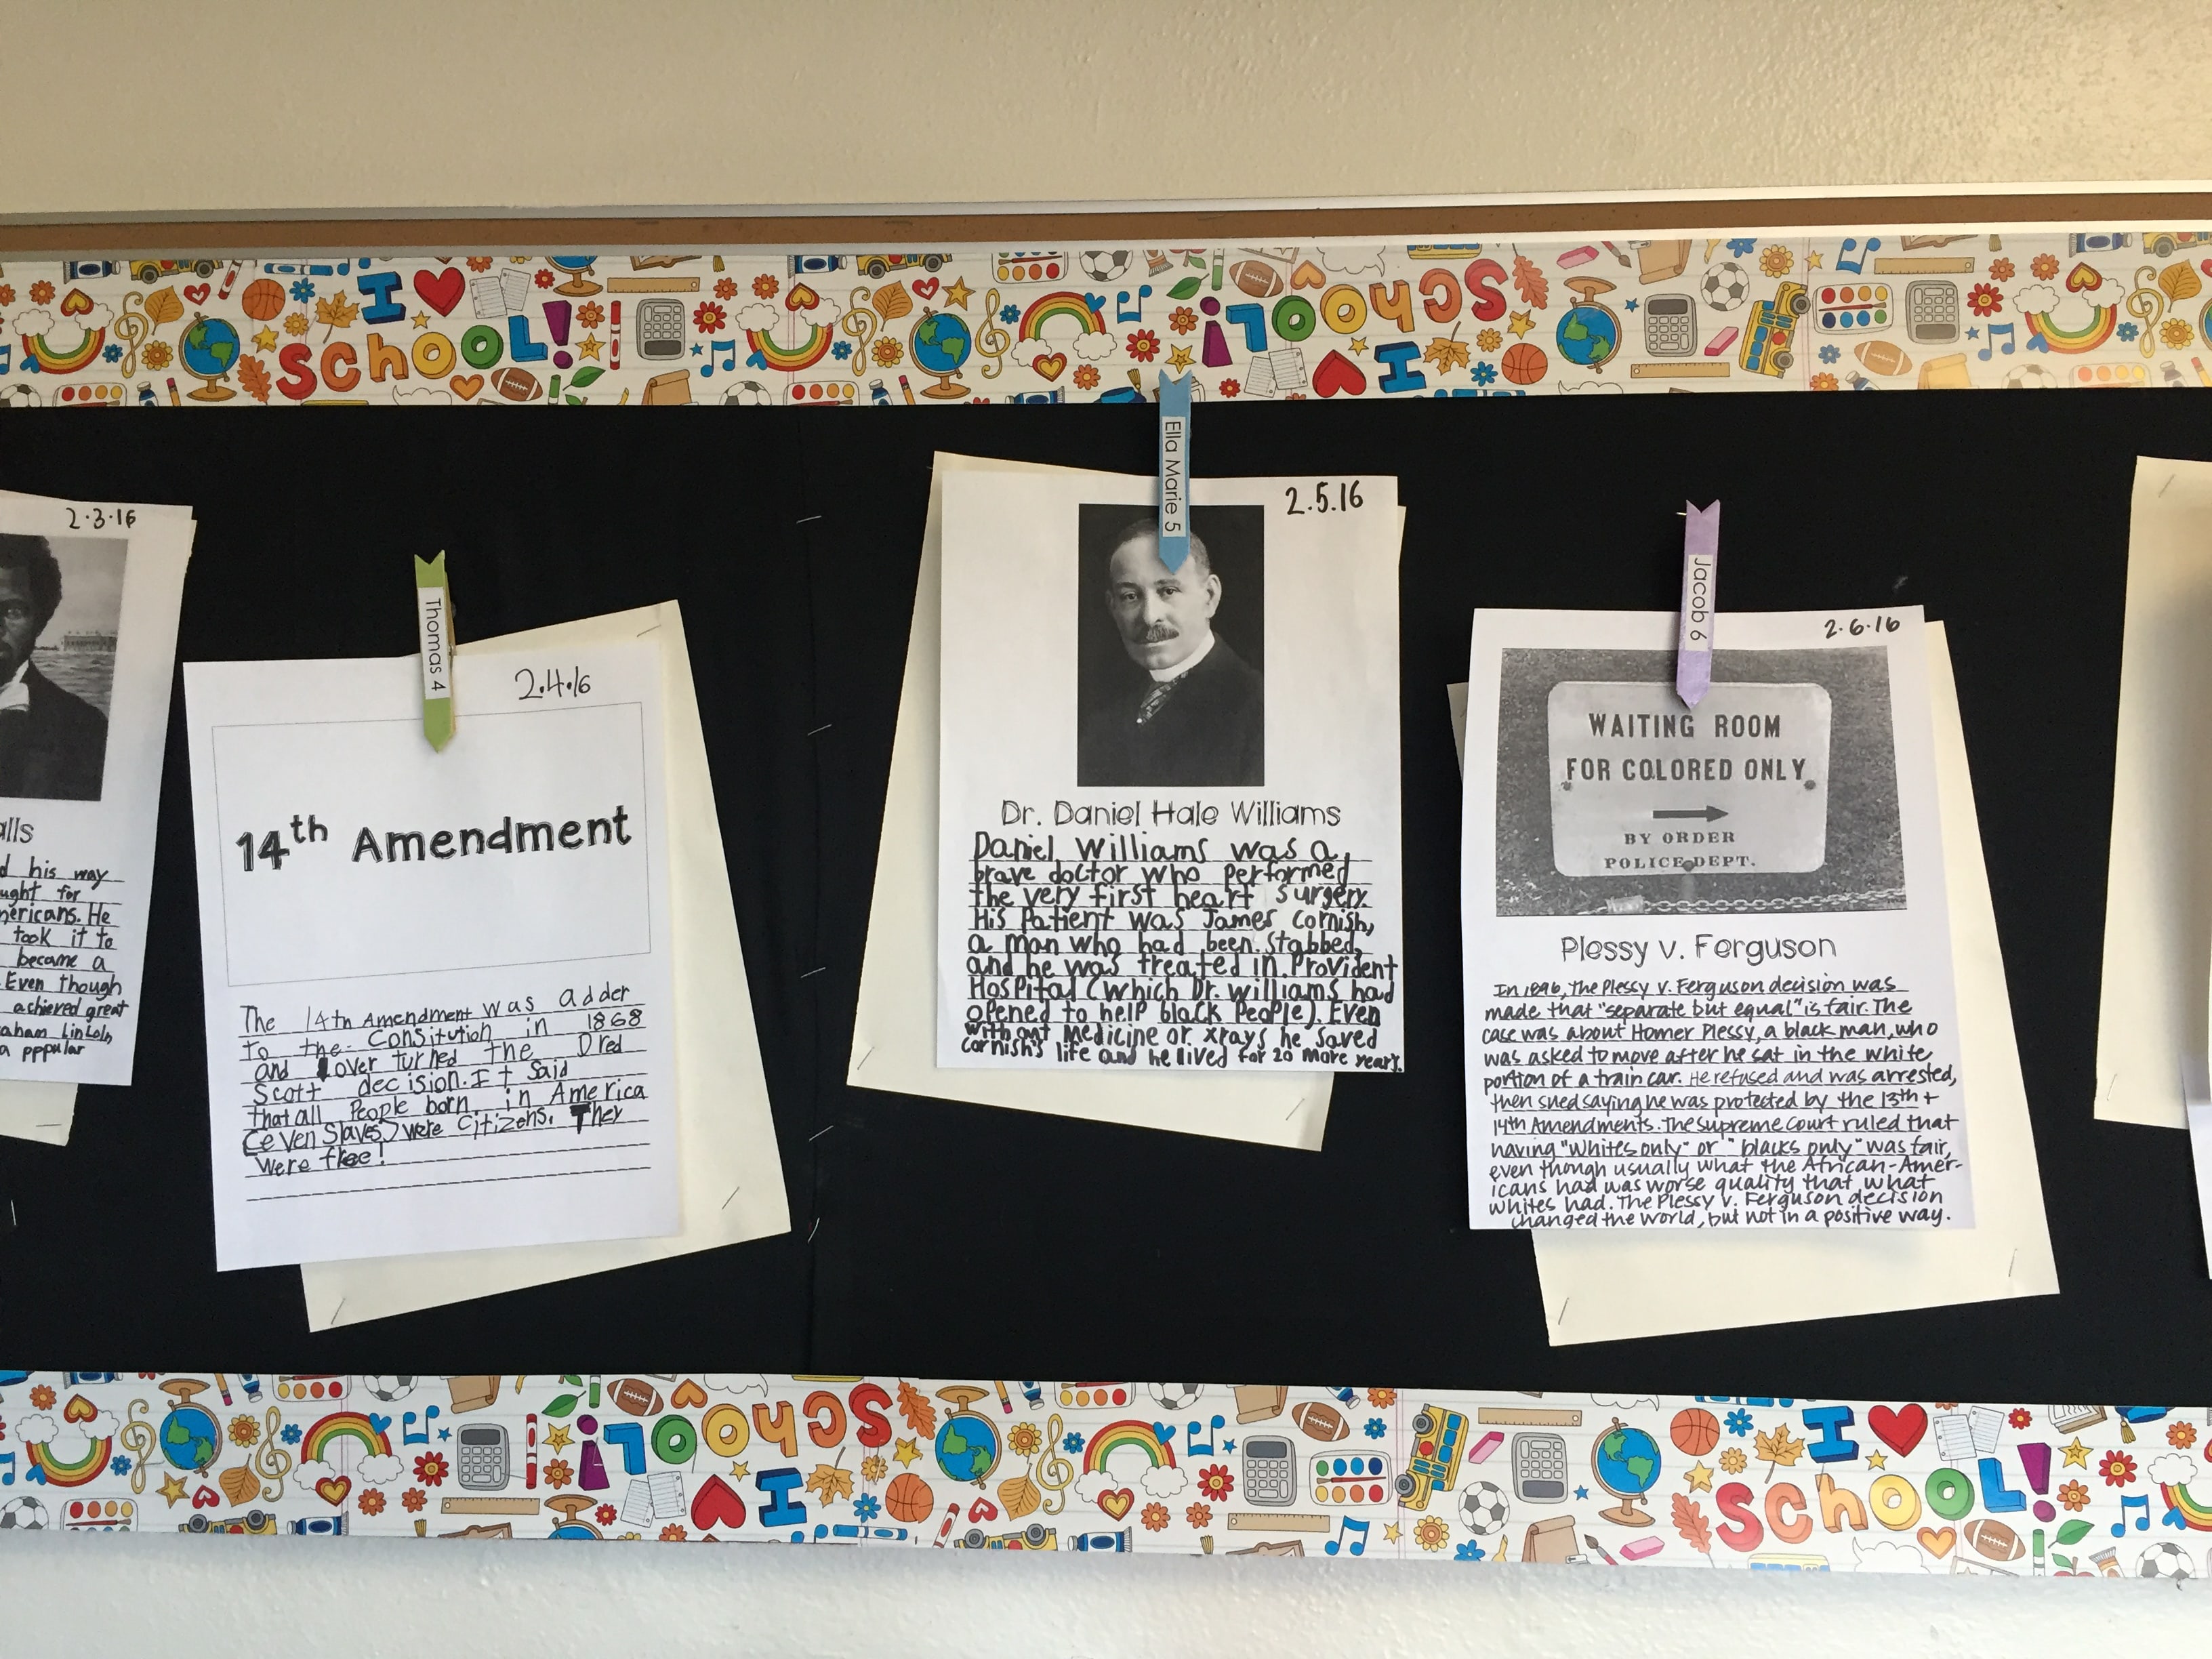 I
SCHOOL!
SCHOOL!
I
2.3.16
alls
d his way
ught for
mericans. He
took it to
became a
Even though
achieved great
aham Lincoln,
a pppular
Thomas 4
2.4.16
14th Amendment
The 14th Amendment was adder
to the Consitution in 1868
and over turned the Dred
Scott decision. It said
that all people born in America
(even slaves) were citizens. They
were free!
Ella Marie 5
2.5.16
Dr. Daniel Hale Williams
Daniel Williams was a
brave doctor who performed
the very first heart surgery.
His Patient was James Cornish,
a man who had been stabbed,
and he was treated in Provident
Hospital (which Dr. Williams had
opened to help black people). Even
without medicine or xrays he saved
cornish's life and he lived for 20 more years.
Jacob 6
2.6.16
WAITING ROOM
FOR COLORED ONLY
BY ORDER
POLICE DEPT.
Plessy v. Ferguson
In 1896, the Plessy v. Ferguson decision was
made that "separate but equal" is fair. The
case was about Homer Plessy, a black man, who
was asked to move after he sat in the white
portion of a train car. He refused and was arrested,
then sued saying he was protected by the 13th +
14th Amendments. The Supreme Court ruled that
having "whites only" or "blacks only" was fair,
even though usually what the African-Amer-
icans had was worse quality that what
whites had. The Plessy v. Ferguson decision
changed the world, but not in a positive way.
SCHOOL!
I
I
SCHOOL!